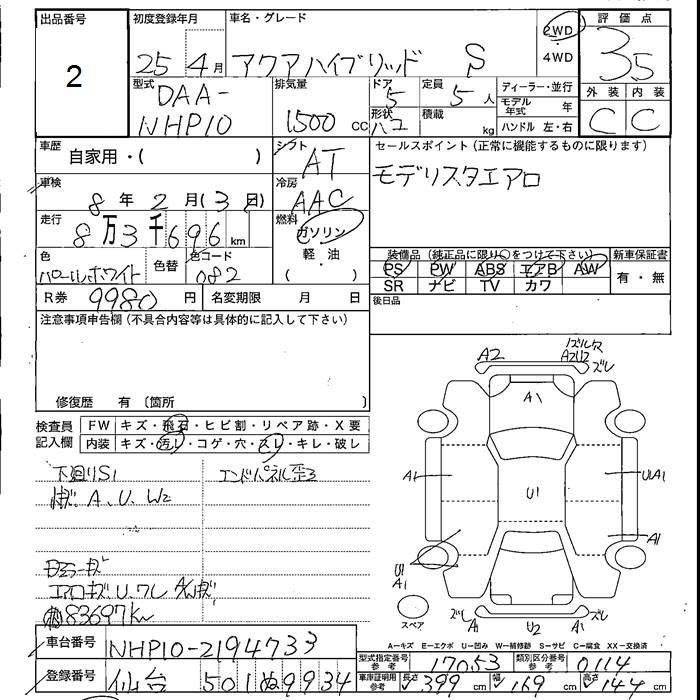 出品番号 初度登録年月 車名・グレード 評価点
2
25年 4月 アクアハイブリッド S
2WD
4WD
3.5
型式 排気量 ドア 定員 ディーラー・並行 外装 内装
DAA-
NHP10
1500 CC
5 5人
形状 積載 モデル年式 年
ハコ kg ハンドル 左・右
C C
車歴 自家用・( ) シフト AT
セールスポイント(正常に機能するものに限ります)
モデリスタエアロ
車検 8年 2月(3日) 冷房 AAC
走行 8万3千696km 燃料 ガソリン
軽・油
( )
色 パールホワイト 色替 色コード 082
装備品(純正品に限り○をつけて下さい) 新車保証書
PS PW ABS エアB AW 有・無
SR ナビ TV カワ
R券 9980円 名変期限 月 日 後日品
注意事項申告欄(不具合内容等は具体的に記入して下さい)
修復歴 有 〔箇所 〕
検査員 FW キズ・飛石・ヒビ割・リペア跡・X要
記入欄 内装 キズ・汚レ・コゲ・穴・スレ・キレ・破レ
下廻りS1 エンドパネル歪3
A、U、W2
エアロキズ U、ワレ
83697km
A2 A2U2 ズレ
A1
A1 U1 UA1
A1
U1
A1
スペア
ズレ A U2 A1 ズレ
A-キズ E-エクボ U-凹み W-補修跡 S-サビ C-腐食 XX-交換済
車台番号 NHP10-2194733
型式指定番号 参考 17053 類別区分番号 参考 0114
登録番号 仙台 501 ぬ9934
車庫証明用 参考 長さ 399 cm 幅 169 cm 高さ 144 cm